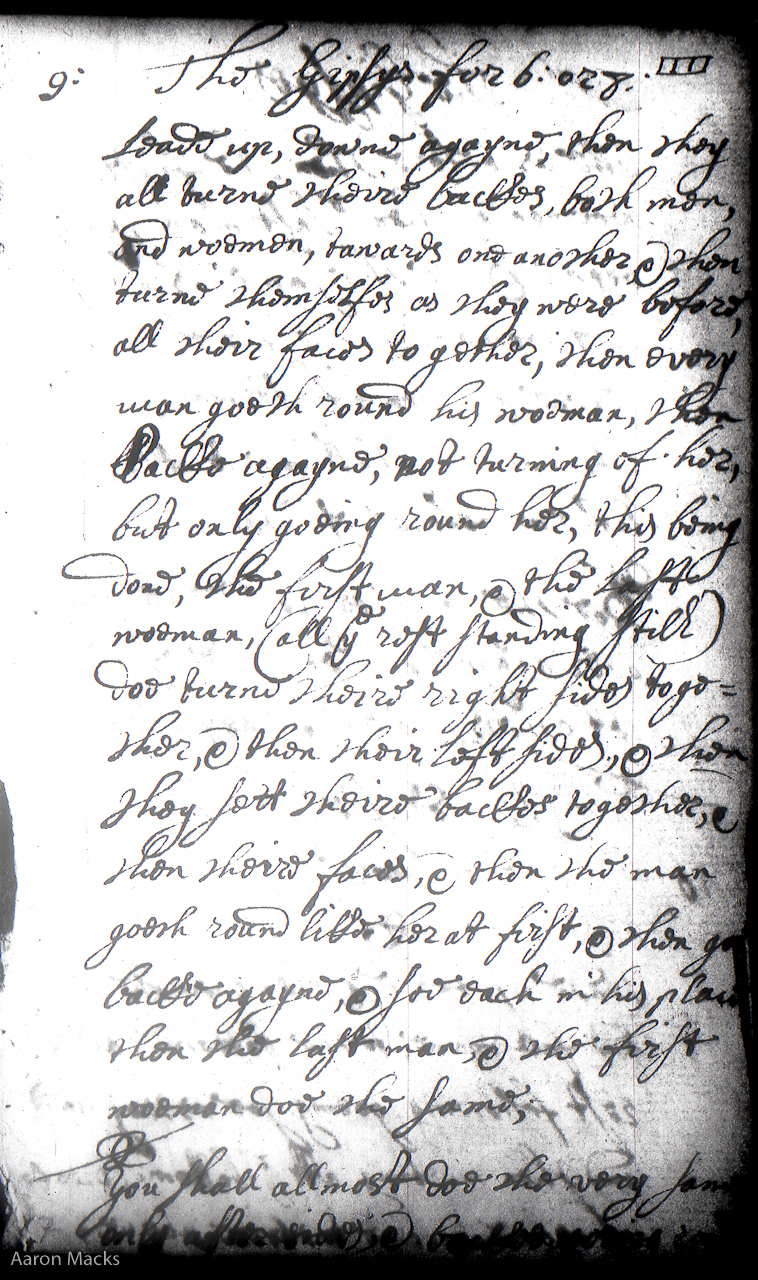 9: The Gipsys for 6: or 8: 11
Leade up, downe agayne, then they
all turne theire backes, both men,
and woemen, towards one another, & then
turne themselfes as they were before,
all their faces together, then every
man goeth round his woeman, then
backe agayne, not turning of her,
but only goeing round her, this being
done, the first man, & the last
woeman, (all ye rest standing still)
doe turne theire right sides toge=
ther, & then their left sides, & then
they sett theire backes together, &
then theire faces, & then the man
goeth round like her at first, & then go
backe agayne, & soe each in his place
then the last man, & the first
woeman doe the same,
You shall allmost doe the very same
only &
Aaron Macks